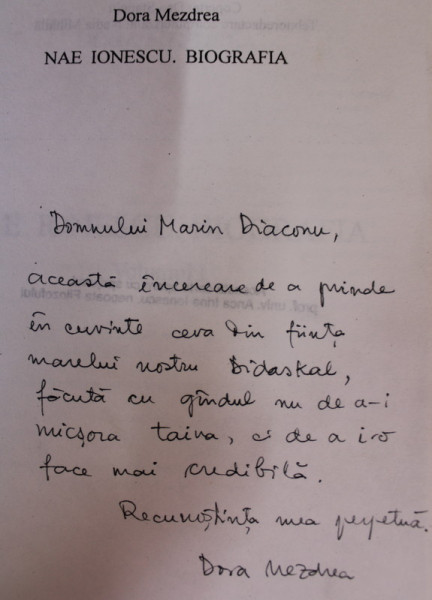 Dora Mezdrea
NAE IONESCU. BIOGRAFIA
Domnului Marin Diaconu,
această încercare de a prinde
în cuvinte ceva din ființa
marelui nostru Didaskal,
făcută cu gîndul nu de a-i
micșora taina, ci de a i-o
face mai credibilă.
Recunoștința mea perpetuă.
Dora Mezdrea